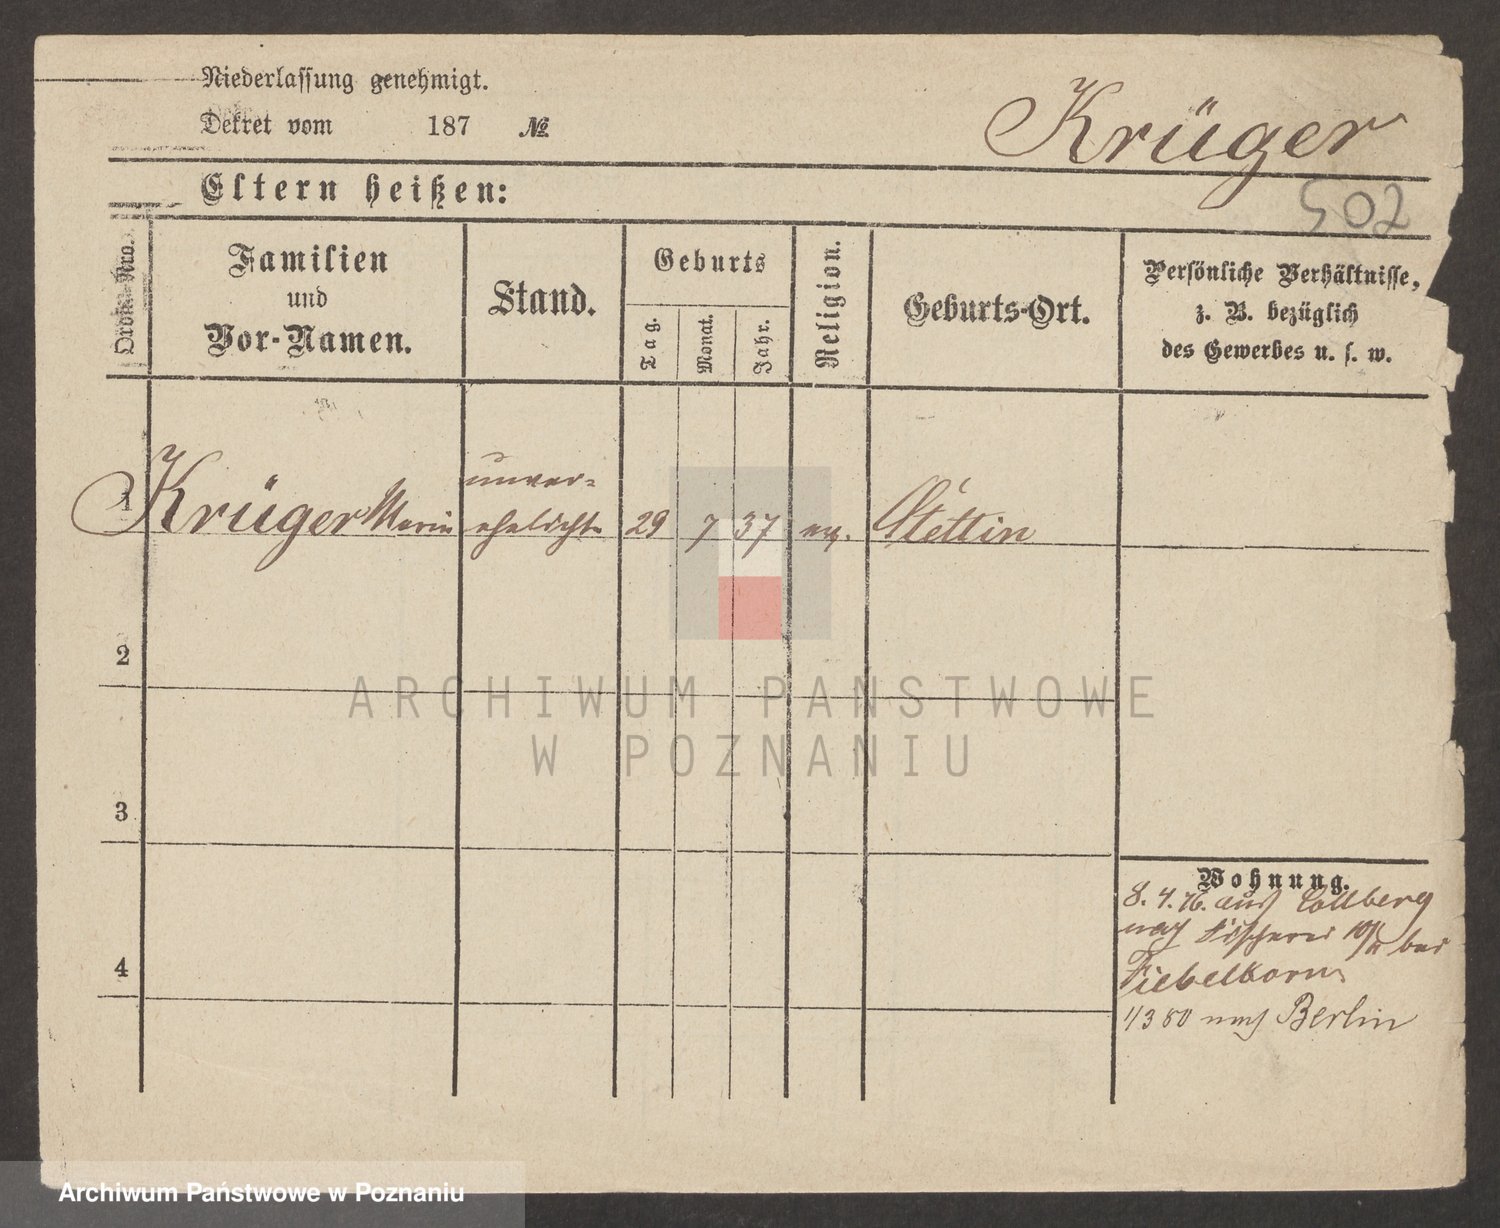 Niederlassung genehmigt.
Dekret vom 187 №
Krüger
Eltern heißen:
502
Ordn. Nro.
Familien
und
Vor-Namen.
Stand.
Geburts
Tag.
Monat.
Jahr.
Religion.
Geburts-Ort.
Persönliche Verhältnisse,
z. B. bezüglich
des Gewerbes u. s. w.
1 Krüger Marie unver-
ehelichte 29 7 37 ev. Stettin
2
3
4
Wohnung.
8. 4. 76. aus Collberg
nach Fischerei 10/11 bei
Fiebelkorn
1/3 80 nach Berlin
ARCHIWUM PAŃSTWOWE
W POZNANIU
Archiwum Państwowe w Poznaniu